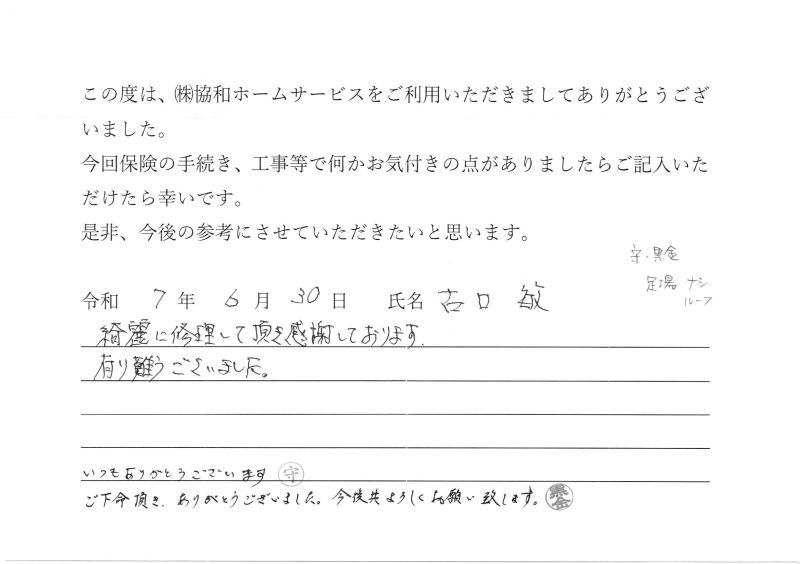 この度は、㈱協和ホームサービスをご利用いただきましてありがとうござ
いました。
今回保険の手続き、工事等で何かお気付きの点がありましたらご記入いた
だけたら幸いです。
是非、今後の参考にさせていただきたいと思います。
守・黒金
足場 ナシ
ルーフ
令和 7 年 6 月 30 日 氏名 古口 敏
綺麗に修理して頂き感謝しております.
有り難うございました。
いつもありがとうございます 守
ご下命頂き、ありがとうございました。今後共よろしくお願い致します。 黒金